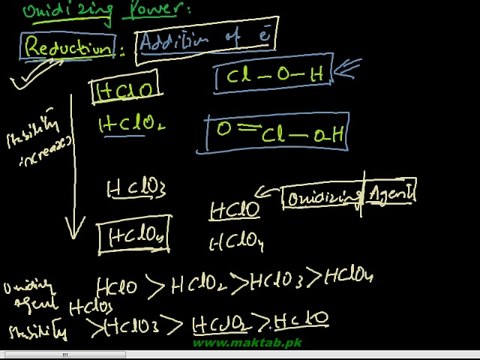 Oxidizing Power:
Reduction: Addition of e
HClO Cl-O-H
HClO2 O=Cl-OH
Stability increases
HClO3
HClO Oxidizing Agent
HClO4 HClO4
Oxidizing Agent HClO > HClO2 > HClO3 > HClO4
HClO3
Stability > HClO3 > HClO2 > HClO
www.maktab.pk